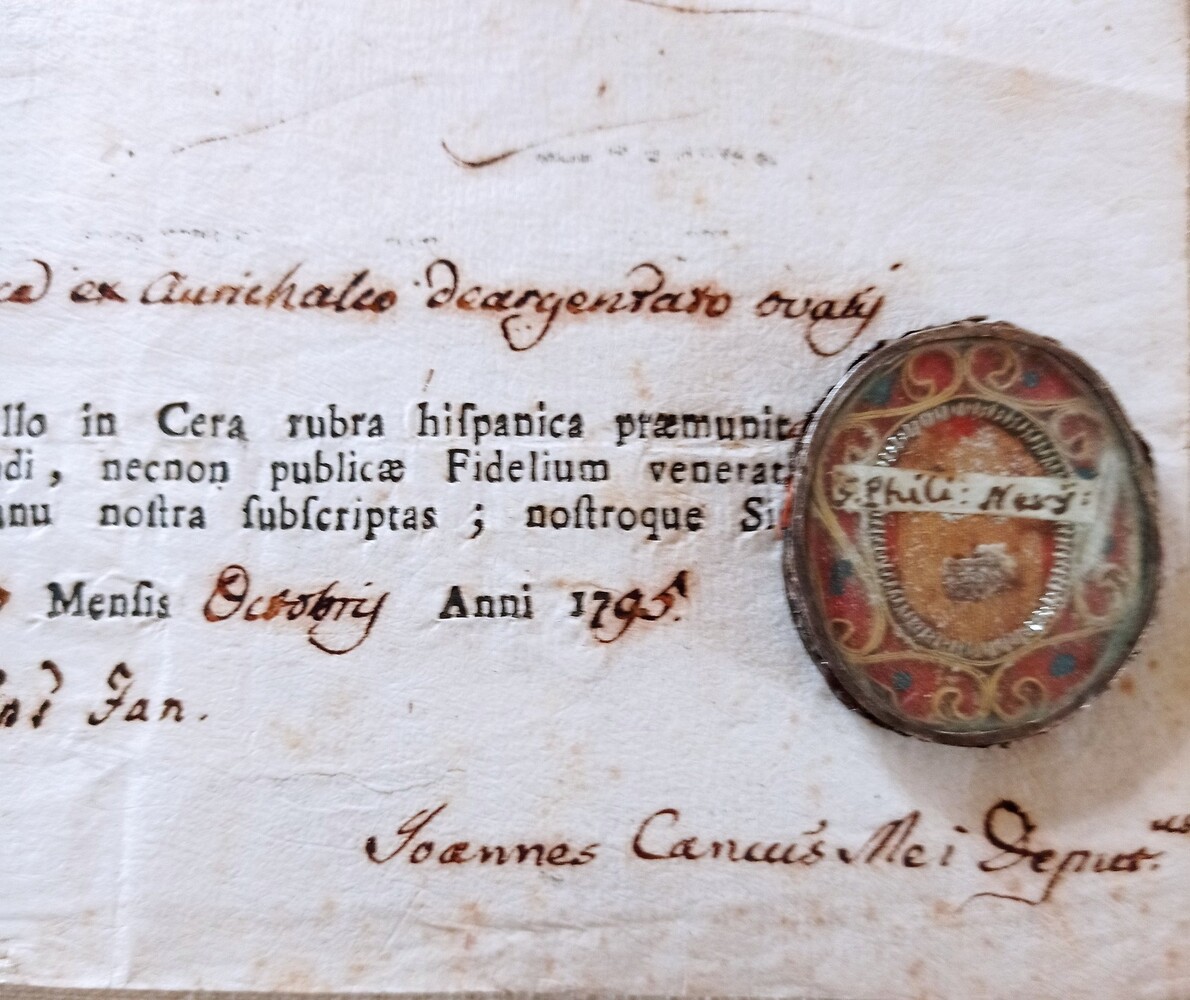 ex Aurichalco deargentato ovalis
llo in Cera rubra hiſpanica præmunit
di, necnon publicæ Fidelium venerat
nu noſtra ſubſcriptas ; noſtroque Si
S. Phili: Nerij:
Menſis Octobris Anni 1795.
Jan.
Joannes Mei Deput.us